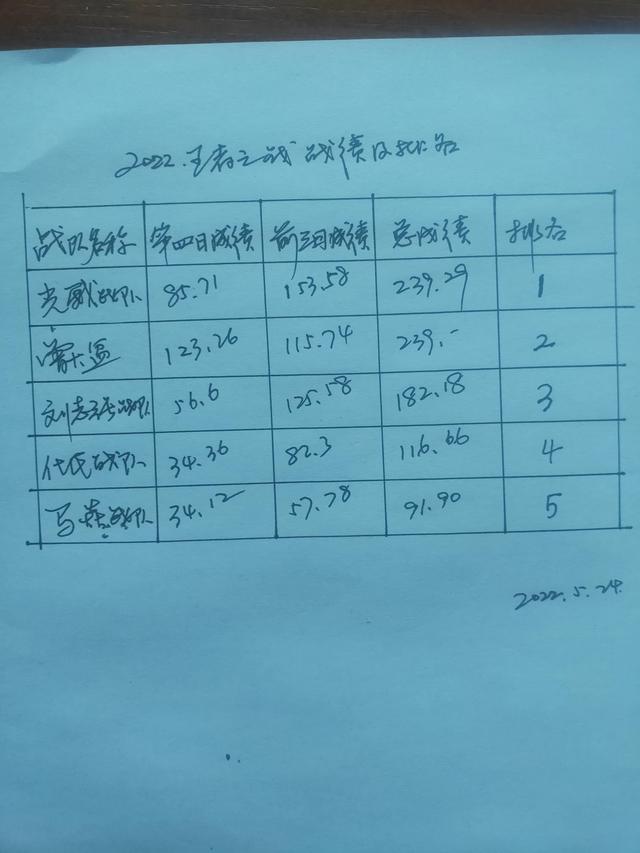 2022.王者之战 战绩及排名
战队名称 第四日成绩 前三日成绩 总成绩 排名
光威战队 85.71 153.58 239.29 1
123.26 115.74 239.- 2
刘志强战队 56.6 125.58 182.18 3
代氏战队 34.36 82.3 116.66 4
马英战队 34.12 57.78 91.90 5
2022.5.24.